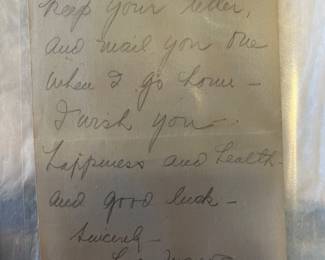 keep your letter,
and mail you one
when I go home —
I wish you —
happiness and health
and good luck —
Sincerely —